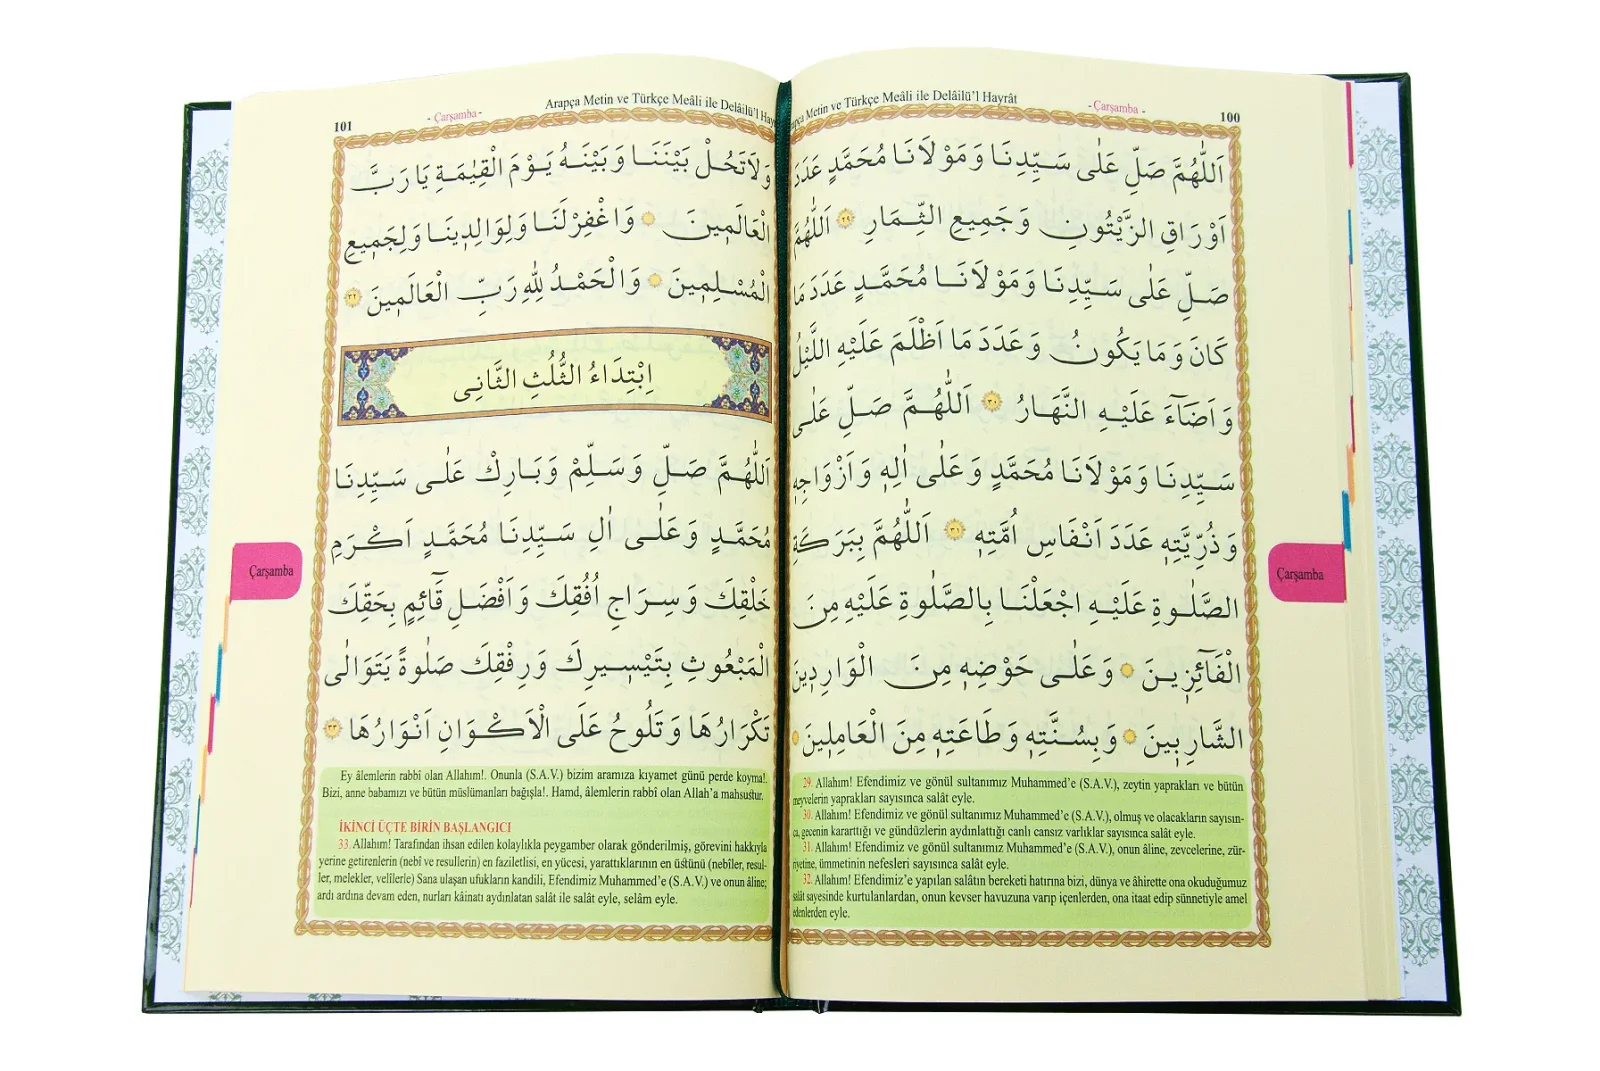 100
- Çarşamba -
Metin ve Türkçe Meâli ile Delâilü'l Hayrât
اَللّٰهُمَّ صَلِّ عَلٰى سَيِّدِنَا وَمَوْلَانَا مُحَمَّدٍ عَدَدَ
اَوْرَاقِ الزَّيْتُونِ وَجَمِيعِ الثِّمَارِ ٢٩ اَللّٰهُمَّ
صَلِّ عَلٰى سَيِّدِنَا وَمَوْلَانَا مُحَمَّدٍ عَدَدَ مَا
كَانَ وَمَا يَكُونُ وَعَدَدَ مَا اَظْلَمَ عَلَيْهِ اللَّيْلُ
وَاَضَٓاءَ عَلَيْهِ النَّهَارُ ٣٠ اَللّٰهُمَّ صَلِّ عَلٰى
سَيِّدِنَا وَمَوْلَانَا مُحَمَّدٍ وَعَلٰى اٰلِهٖ وَاَزْوَاجِهٖ
وَذُرِّيَّتِهٖ عَدَدَ اَنْفَاسِ اُمَّتِهٖ ٣١ اَللّٰهُمَّ بِبَرَكَةِ
الصَّلٰوةِ عَلَيْهِ اجْعَلْنَا بِالصَّلٰوةِ عَلَيْهِ مِنَ
الْفَٓائِزِينَ وَعَلٰى حَوْضِهٖ مِنَ الْوَارِدِينَ
الشَّارِبِينَ وَبِسُنَّتِهٖ وَطَاعَتِهٖ مِنَ الْعَامِلِينَ
29. Allahım! Efendimiz ve gönül sultanımız Muhammed'e (S.A.V.), zeytin yaprakları ve bütün
meyvelerin yaprakları sayısınca salât eyle.
30. Allahım! Efendimiz ve gönül sultanımız Muhammed'e (S.A.V.), olmuş ve olacakların sayısın-
ca, gecenin kararttığı ve gündüzlerin aydınlattığı canlı cansız varlıklar sayısınca salât eyle.
31. Allahım! Efendimiz ve gönül sultanımız Muhammed'e (S.A.V.), onun âline, zevcelerine, zür-
riyetine, ümmetinin nefesleri sayısınca salât eyle.
32. Allahım! Efendimiz'e yapılan salâtın bereketi hatırına bizi, dünya ve âhirette ona okuduğumuz
salât sayesinde kurtulanlardan, onun kevser havuzuna varıp içenlerden, ona itaat edip sünnetiyle amel
edenlerden eyle.
Çarşamba
101
- Çarşamba -
Arapça Metin ve Türkçe Meâli ile Delâilü'l Hay
وَلَاتَحُلْ بَيْنَنَا وَبَيْنَهُ يَوْمَ الْقِيٰمَةِ يَا رَبَّ
الْعَالَمِينَ وَاغْفِرْلَنَا وَلِوَالِدِينَا وَلِجَمِيعِ
الْمُسْلِمِينَ وَالْحَمْدُ لِلّٰهِ رَبِّ الْعَالَمِينَ ٣٢
اِبْتِدَاءُ الثُّلُثِ الثَّانِى
اَللّٰهُمَّ صَلِّ وَسَلِّمْ وَبَارِكْ عَلٰى سَيِّدِنَا
مُحَمَّدٍ وَعَلٰى اٰلِ سَيِّدِنَا مُحَمَّدٍ اَكْرَمِ
خَلْقِكَ وَسِرَاجِ اُفُقِكَ وَاَفْضَلِ قَٓائِمٍ بِحَقِّكَ
الْمَبْعُوثِ بِتَيْسِيرِكَ وَرِفْقِكَ صَلٰوةً يَتَوَالٰى
تَكْرَارُهَا وَتَلُوحُ عَلَى الْاَكْوَانِ اَنْوَارُهَا ٣٣
Ey âlemlerin rabbî olan Allahım!. Onunla (S.A.V.) bizim aramıza kıyamet günü perde koyma!.
Bizi, anne babamızı ve bütün müslümanları bağışla!. Hamd, âlemlerin rabbî olan Allah'a mahsustur.
İKİNCİ ÜÇTE BİRİN BAŞLANGICI
33. Allahım! Tarafından ihsan edilen kolaylıkla peygamber olarak gönderilmiş, görevini hakkıyla
yerine getirenlerin (nebî ve resullerin) en faziletlisi, en yücesi, yarattıklarının en üstünü (nebîler, resul-
ler, melekler, velîlerle) Sana ulaşan ufukların kandili, Efendimiz Muhammed'e (S.A.V.) ve onun âline;
ardı ardına devam eden, nurları kâinatı aydınlatan salât ile salât eyle, selâm eyle.
Çarşamba